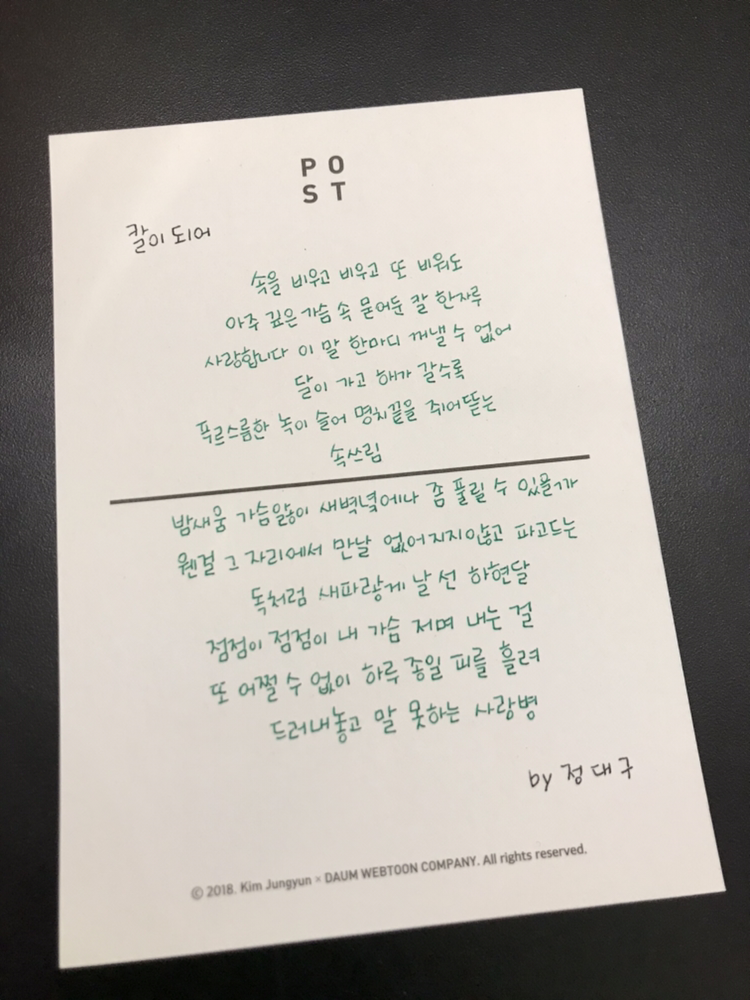 PO
ST
칼이 되어
속을 비우고 비우고 또 비워도
아주 깊은 가슴 속 묻어둔 칼 한자루
사랑합니다 이 말 한마디 꺼낼 수 없어
달이 가고 해가 갈수록
푸르스름한 녹이 슬어 명치끝을 쥐어뜯는
속쓰림
밤새움 가슴앓이 새벽녘에나 좀 풀릴 수 있을가
웬걸 그 자리에서 만날 없어지지않고 파고드는
독처럼 새파랗게 날 선 하현달
점점이 점점이 내 가슴 저며 내는 걸
또 어쩔 수 없이 하루 종일 피를 흘려
드러내놓고 말 못하는 사랑병
by 정대구
© 2018. Kim Jungyun × DAUM WEBTOON COMPANY. All rights reserved.